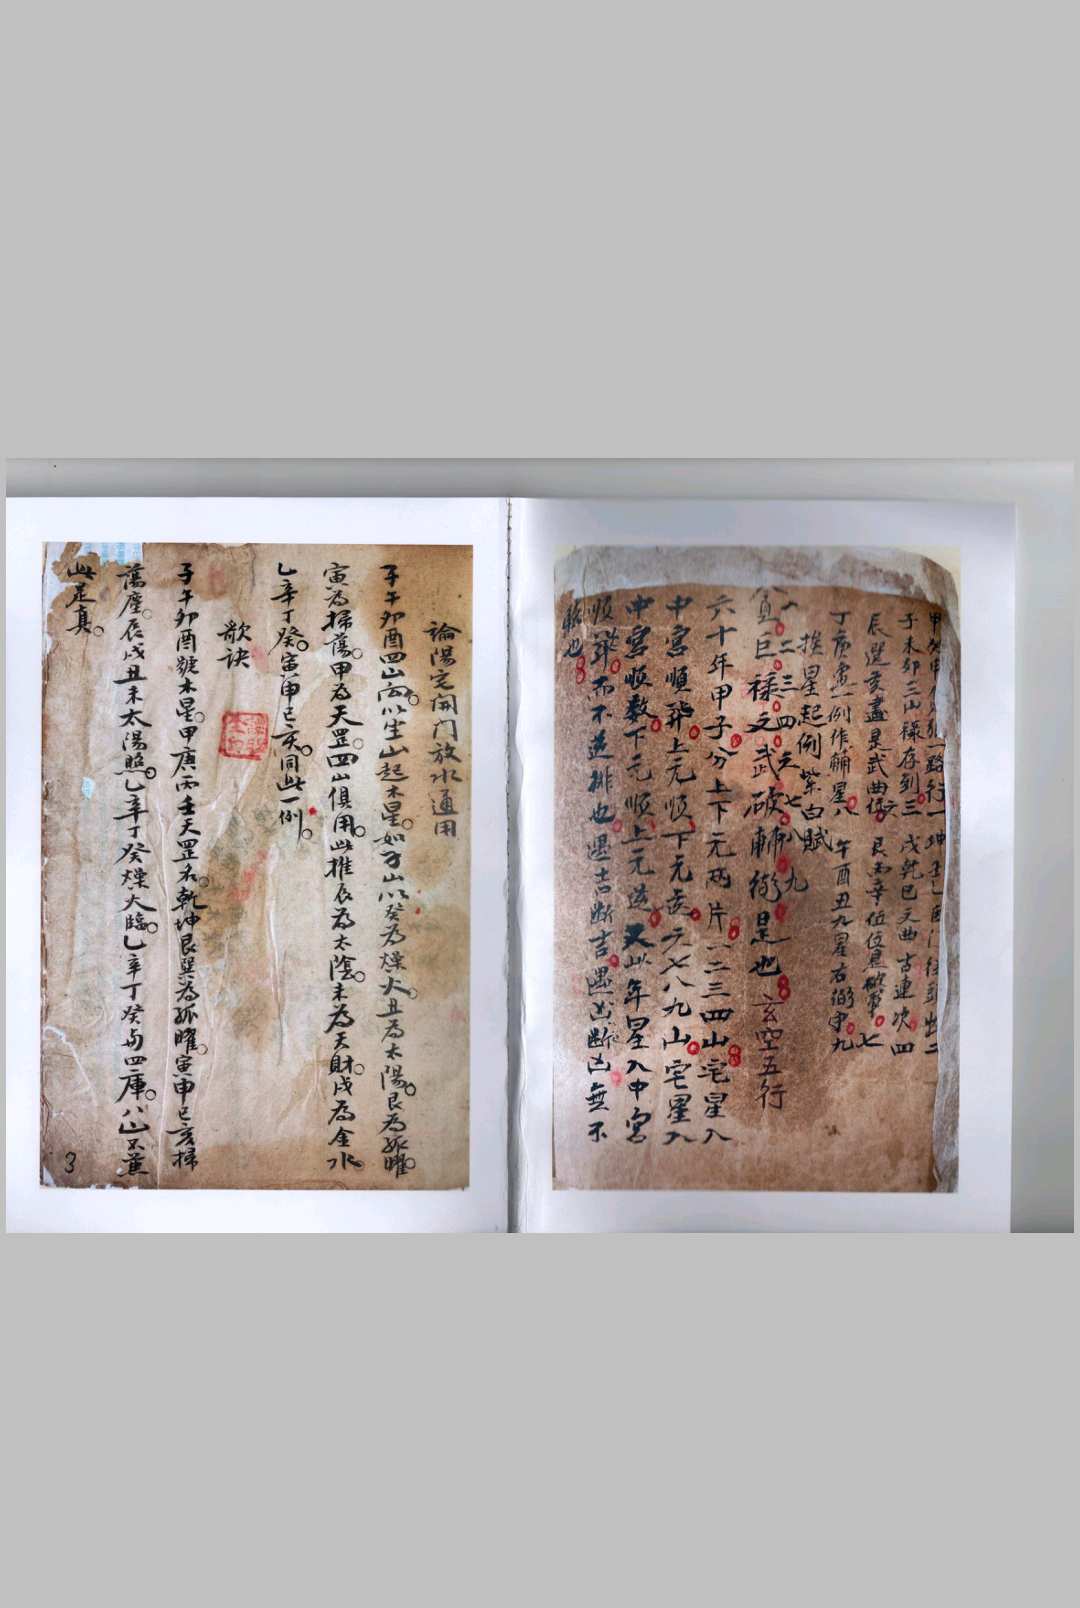 甲癸申貪狼一路行一 坤壬乙 巨門從頭出二
子未卯三山禄存到三 戌乾巳文曲古連次四
辰巽亥盡是武曲位六 艮丙辛位位是破軍七
丁庚寅一例作輔星八 午酉丑九星右弼守九
挨星起例紫白賦
一二三四五七八九
貪巨禄文武破輔弼是也 玄空五行
六十年甲子分上下元两片一二三四山宅星入
中宮順飛上元順下元逆六七八九山宅星入
中宮順数下元順上元逆又以年星入中宮
順飛而不逆排也遇吉断吉遇凶断凶無不
驗也
論陽宅開门放水通用
子午卯酉四山向以坐山起木星如子山以癸為燥火丑為太陽艮為孤曜
寅為掃蕩甲為天罡四山俱用此推辰為太陰未為天財戌為金水
乙辛丁癸寅申巳亥同此一例
歌诀
子午卯酉號木星甲庚丙壬天罡名乾坤艮巽為孤曜寅申巳亥掃
蕩塵辰戌丑未太陽照乙辛丁癸燥火臨乙辛丁癸与四庫八山不蕙
此是真
3